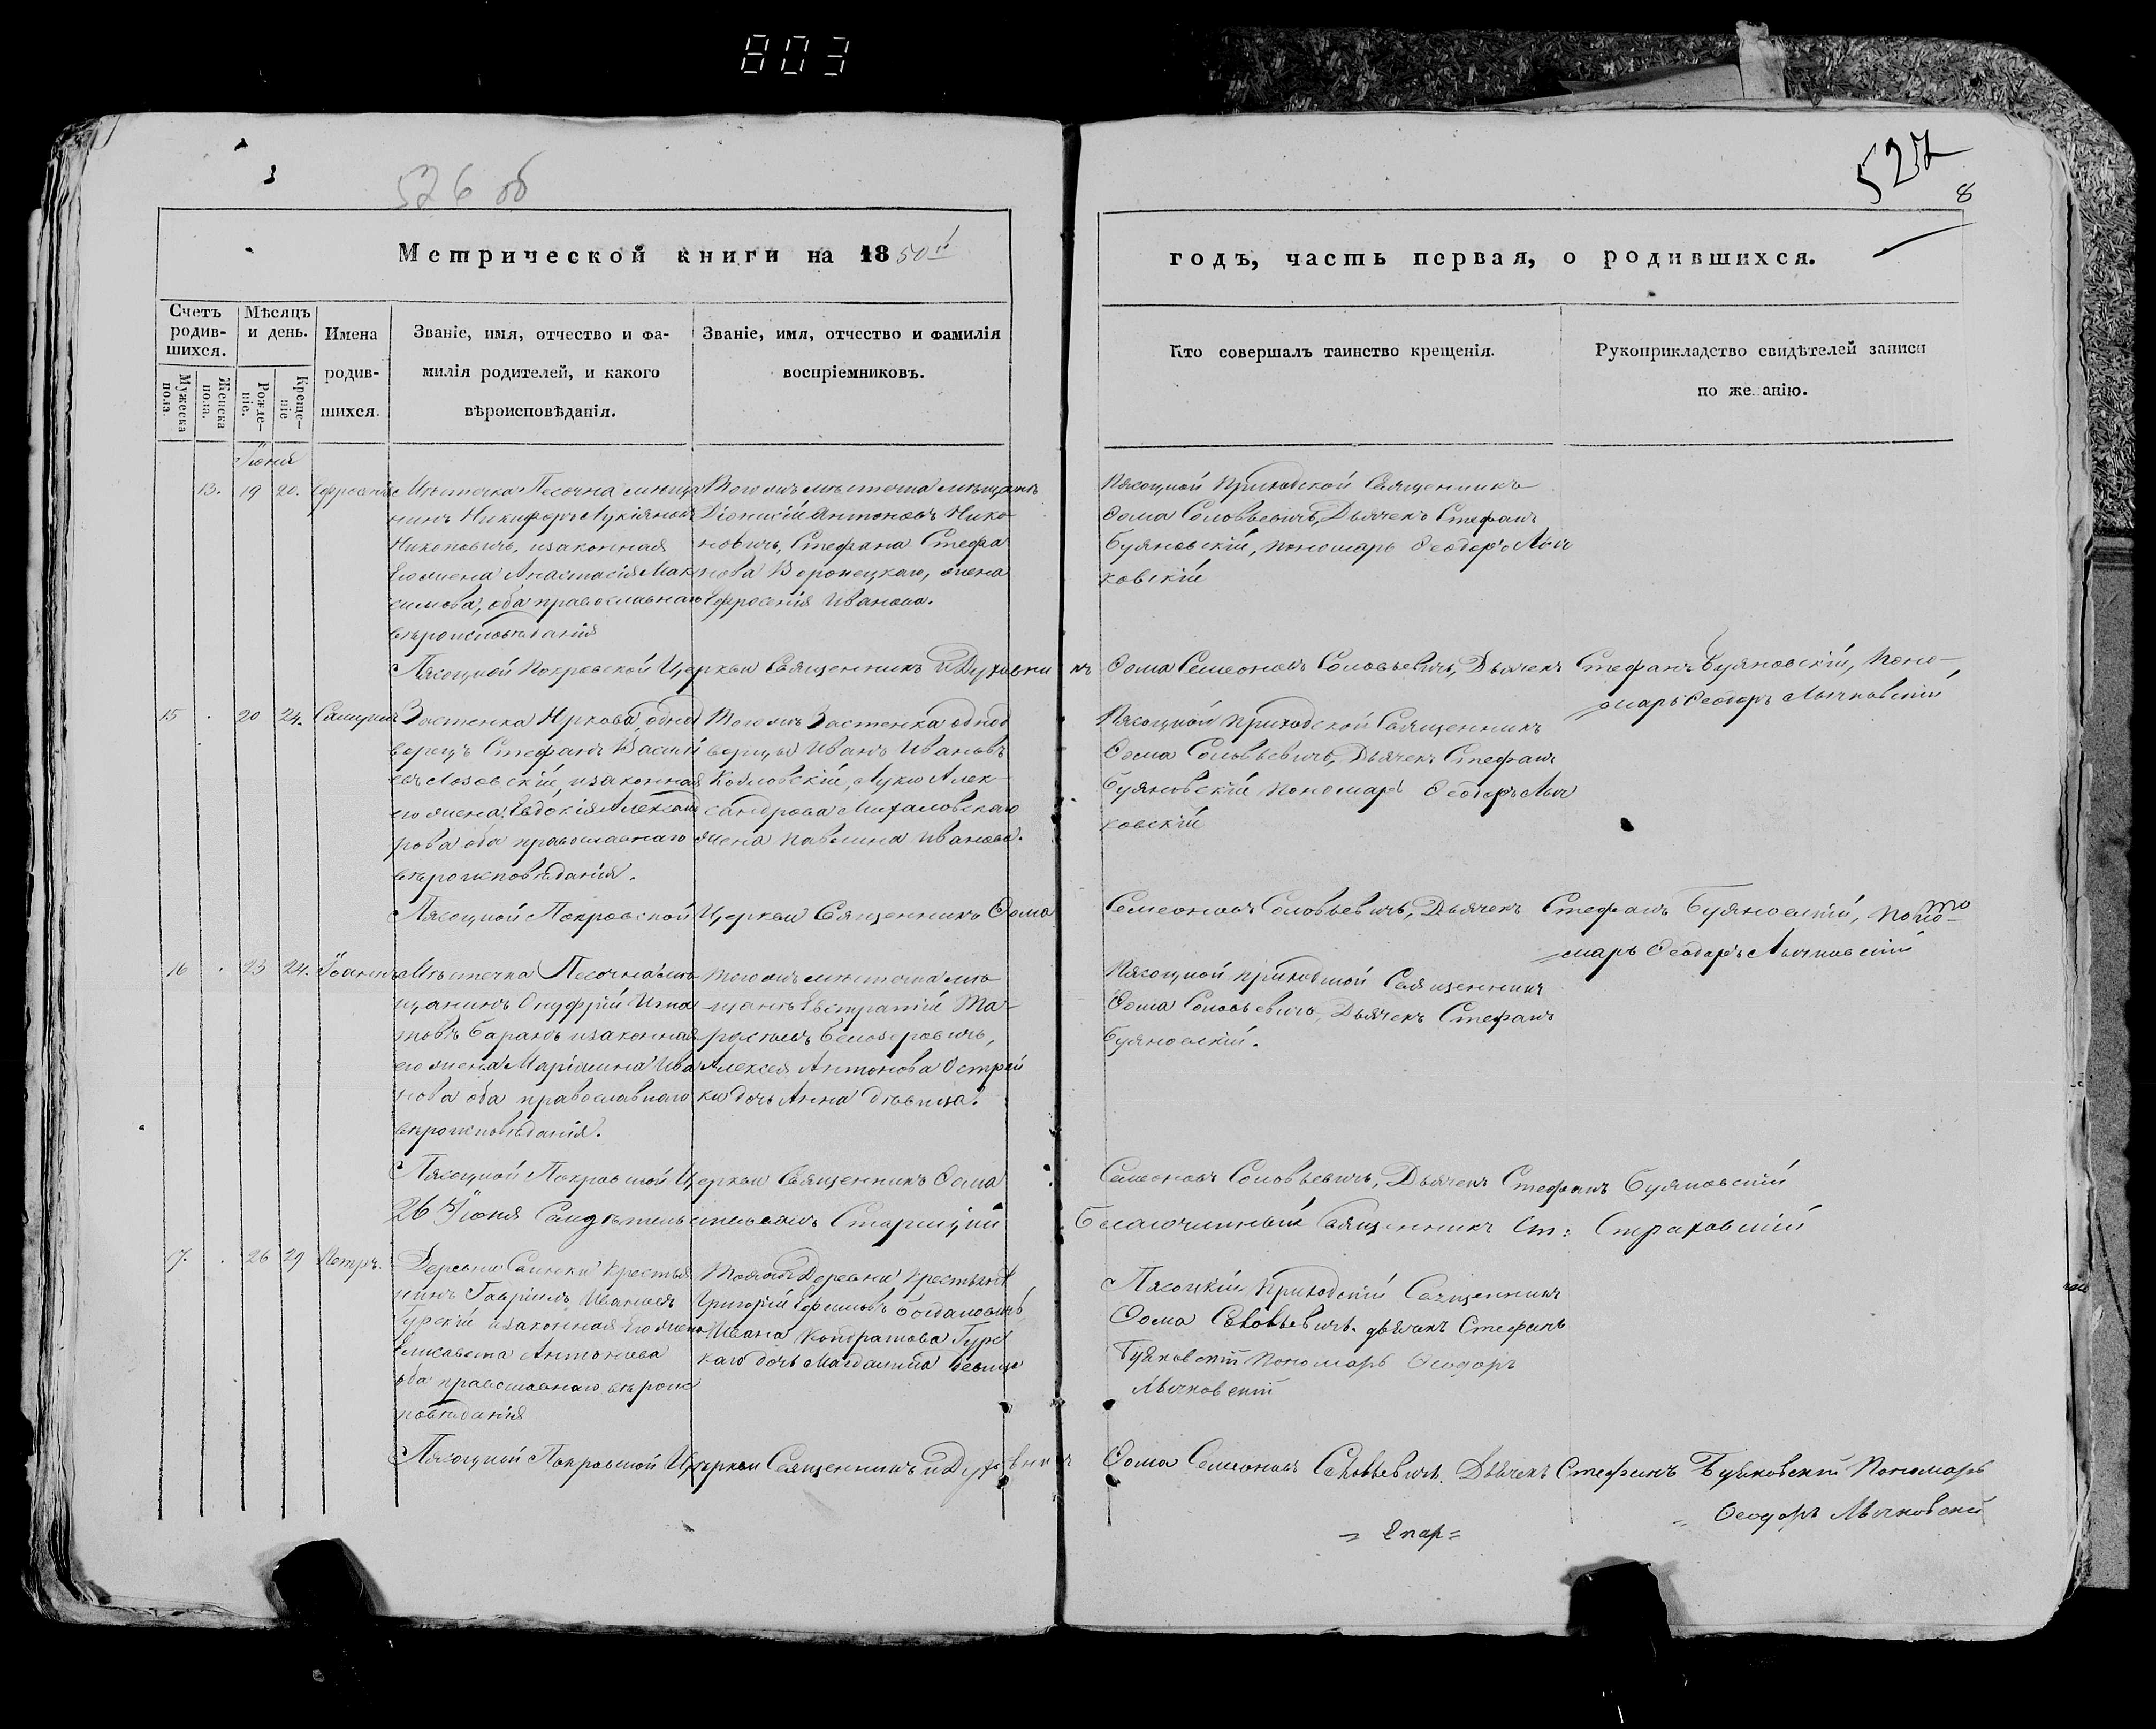 803
526 об
527
8
Метрической книги на 1850й
годъ, часть первая, о родившихся.
Счетъ родив-шихся.
Мѣсяцъ и день.
Имена родив-шихся.
Званіе, имя, отчество и фа-
милія родителей, и какого
вѣроисповѣданія.
Званіе, имя, отчество и фамилія
воспріемниковъ.
Мужеска пола.
Женска пола.
Рожде-ніе.
Креще-ніе
Кто совершалъ таинство крещенія.
Рукоприкладство свидѣтелей записи
по же анію.
Іюня
13. 19 20. Ефросинія
Мѣстечка Песочна мѣща
нинъ Никифоръ Лукіяновъ
Никоновичъ, изаконная
Его жена Анастасія Мак
симова, оба православнаго
вѣроисповѣданія
Того жъ мѣстечка мѣщанинъ
Діонисій Антоновъ Нико
новичъ, Стефана Стефа
нова Воронецкаго, жена
Ефросинія Иванова.
Пясоцкой Приходской Священникъ
Ѳома Соловьевичъ, Дьячекъ Стефанъ
Буяновскій, пономарь Ѳеодоръ Лыч
ковскій
Пясоцкой Покровской Церкви Священникъ и Духовникъ Ѳома Семеоновъ Соловьевичъ, Дьячекъ Стефанъ Буяновскій, Поно-
марь Ѳеодоръ Лычковскій
15 . 20 24. Самуилъ
Застенка Юркова однод
ворецъ Стефанъ Васильі
евъ Лозовскій, изаконная
его жена Евдокія Александ
рова оба православнаго
вѣроисповѣданія.
Того жъ Застенка однод
ворцы Иванъ Ивановъ
Козловскій, Луки Алек-
сандрова Михаловскаго
жена Павлина Иванова.
Пясоцкой приходской Священникъ
Ѳома Соловьевичъ, Дьячекъ Стефанъ
Буяновскій пономарь Ѳеодоръ Лыч
ковскій
Пясоцкой Покровской Церкви Священникъ Ѳома Семеоновъ Соловьевичъ, Дьячекъ Стефанъ Буяновскій, Поно-
марь Ѳеодоръ Лычковскій
16 . 23 24. Іоаннъ
Мѣстечка Песочна мѣ
щанинъ Онуфрій Игна
товъ Баранъ изаконная
его жена Маріянна Ива
нова оба православнаго
вѣроисповѣданія.
Того жъ мѣстечка мѣ
щанъ Евстратій Та-
расьевъ Белозоровичъ,
Алексея Антонова Острей
ки дочь Анна дѣвица.
Пясоцкой приходской Священникъ
Ѳома Соловьевичъ, Дьячекъ Стефанъ
Буяновскій.
Пясоцкой Покровской Церкви Священникъ Ѳома Семеоновъ Соловьевичъ, Дьячекъ Стефанъ Буяновскій
26 Іюня Свидѣтельствовалъ Старицкій Благочинный Священникъ Ст: Страховскій
17. . 26 29 Петръ.
Деревни Савински Крестья
нинъ Гавріилъ Ивановъ
Турскій изаконная Его жена
Елисавета Антонова
оба православнаго вѣроис
повѣданія
Тойже Деревни Крестьянъ
Григорій Ефимовъ Богдановичъ,
Ивана Кондратова Турс
каго дочь Магдалина девица
Пясоцкій Приходскій Священникъ
Ѳома Соловьевичъ. дьячекъ Стефанъ
Буяновскій Пономарь Ѳеодоръ
Лычковскій
Пясоцкой Покровской Церкви Священникъ и Духовникъ Ѳома Семеоновъ Соловьевичъ. Дьячекъ Стефанъ Буяновскій Пономарь
Ѳеодоръ Лычковскій
= Епар =